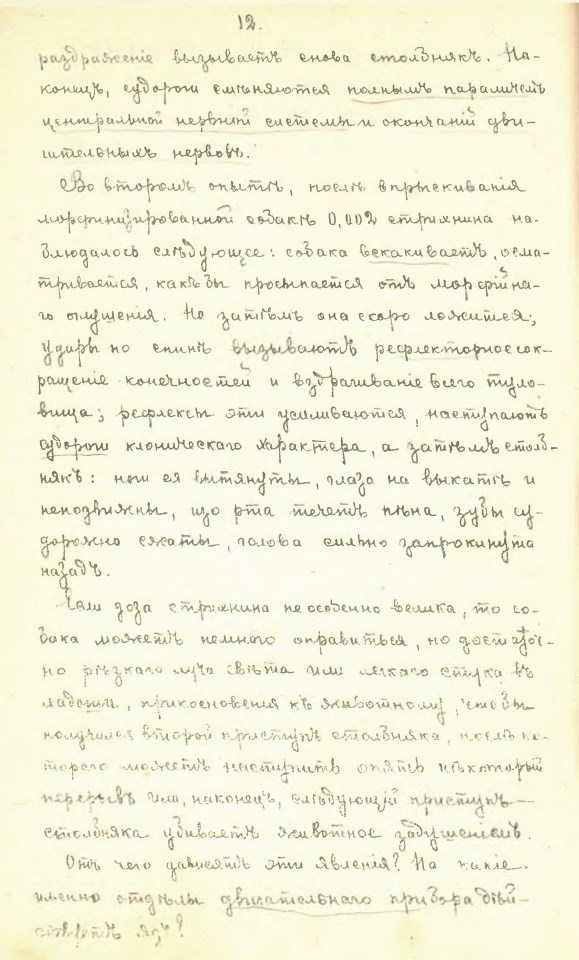 12.
раздраженіе вызываетъ снова столбнякъ. На-
конецъ, судороги смѣняются полнымъ параличемъ
центральной нервной системы и окончаній дви-
гательныхъ нервовъ.
Во второмъ опытѣ, послѣ впрыскиванія
морфинизированной собакѣ 0,002 стрихнина на-
блюдалось слѣдующее: собака вскакиваетъ, осма-
тривается, какъ бы просыпается отъ морфійна-
го оглушенія. Но затѣмъ она скоро ложится;
удары по спинѣ вызываютъ рефлекторное сок-
ращеніе конечностей и вздрагиваніе всего туло-
вища; рефлексы эти усиливаются, наступаютъ
судороги клоническаго характера, а затѣмъ столб-
някъ: ноги ея вытянуты, глаза на выкатѣ и
неподвижны, изо рта течетъ пѣна, зубы су-
дорожно сжаты, голова сильно запрокинута
назадъ.
Если доза стрихнина не особенно велика, то со-
бака можетъ немного оправиться, но достаточ-
но рѣзкаго луча свѣта или легкаго стука въ
ладоши, прикосновенія къ животному, чтобы
получился второй приступъ столбняка, послѣ ко-
тораго можетъ наступить опять нѣкоторый
перерывъ или, наконецъ, слѣдующій приступъ
столбняка убиваетъ животное задушеніемъ.
Отъ чего зависятъ эти явленія? На какіе
именно отдѣлы двигательнаго прибора дѣй-
ствуетъ ядъ?